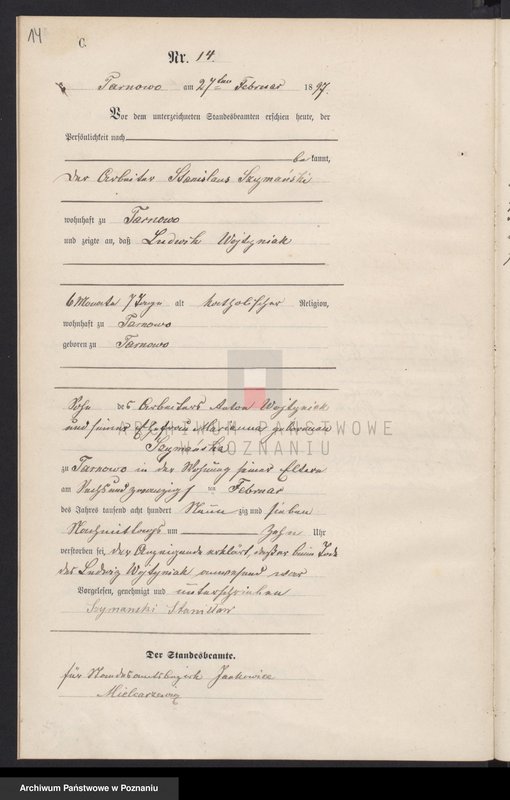 14
C.
Nr. 14.
Tarnowo am 27ten Februar 1897.
Vor dem unterzeichneten Standesbeamten erschien heute, der
Persönlichkeit nach
bekannt,
der Arbeiter Stanislaus Szymański
wohnhaft zu Tarnowo
und zeigte an, daß Ludwik Wojtyniak
6 Monate 7 Tage alt katholischer Religion,
wohnhaft zu Tarnowo
geboren zu Tarnowo
Sohn des Arbeiters Anton Wojtyniak
und seiner Ehefrau Marianna geborenen
Szymańska
ARCHIWUM PAŃSTWOWE
W POZNANIU
zu Tarnowo in der Wohnung seiner Eltern
am Sechsundzwanzigsten Februar
des Jahres tausend acht hundert Neunzig und sieben
Nachmittags um Zehn Uhr
verstorben sei, der Anzeigende erklärt, daß er beim Tode
des Ludwig Wojtyniak anwesend war
Vorgelesen, genehmigt und unterschrieben
Szymanski Stanisław
Der Standesbeamte.
für Standesamtsbezirk Jankowice
Mielcarzewicz
Archiwum Państwowe w Poznaniu